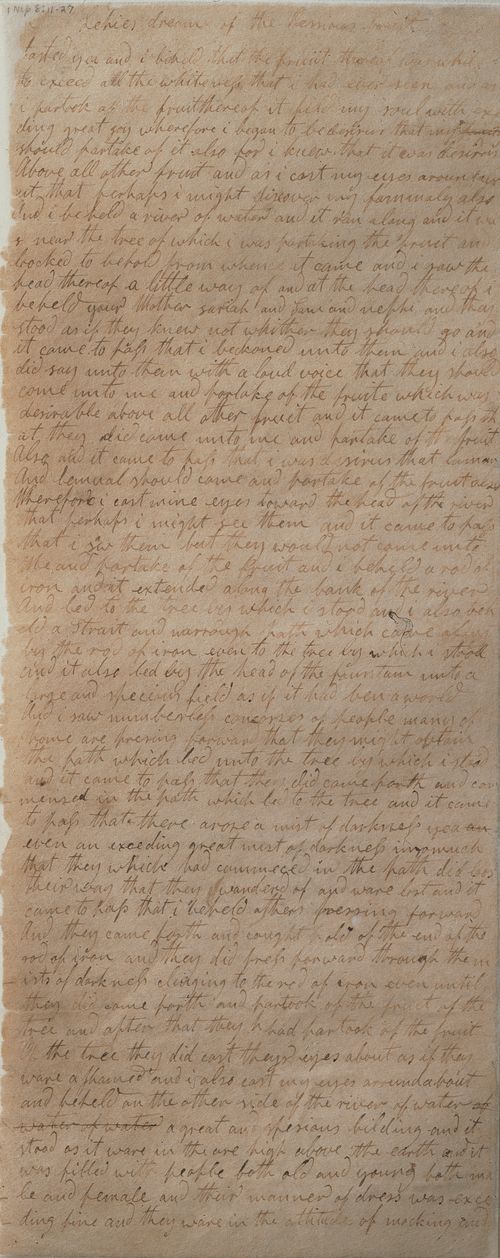 1 Nep 8:11-27
Lehies dream of the
tasted yea and i beheld that the fruit thereof was whit
to exceed all the whiteness that i had ever seen and as
i partook of the fruit thereof it filld my soul with ex
ding great joy wherefore i began to be desirus that my
should partake of it also for i knew that it was desirous
Above all other fruit and as i cast my eyes around
out that perhaps i might discover my fammaly also
And i beheld a river of water and it ran along and it wa
s near the tree of which i was partaking the fruit and
looked to behold from whence it came and i saw the
head thereof a little way of and at the head thereof i
beheld your Mother sariah and Sam and nephi and they
stood as if they knew not whither they should go and
it came to pass that i beckoned unto them and i also
did say unto them with a loud voice that they should
come unto me and partake of the fruite which was
desirable above all other fruit and it came to pass th
at they did come unto me and partake of the fruit
Also and it came to pass that i was desirus that laman
And lemual should come and partake of the fruit also
Wherefore i cast mine eyes toward the head of the river
that perhaps i might see them and it came to pass
that i saw them but they would not come unto
Me and partake of the fruit and i beheld a rod of
iron and it extended along the bank of the river
And led to the tree by which i stood and i also beh
eld a strait and narrough path which came along
by the rod of iron even to the tree by which i stood
and it also led by the head of the fountain unto a
large and specious field as if it had ben a world
And i saw numberless concorses of people many of
home are presing forward that they might obtain
the path which led unto the tree by which i stood
and it came to pass that they did come forth and com
mensed in the path which led to the tree and it came
to pass that there arose a mist of darkness yea an
even an exceding great mist of darkness inasmuch
that they which had commeced in the path did los
their way that they wanderd of and ware lost and it
came to pass that i beheld others pressing forward
And they came forth and caught hold of the end of the
rod of iron and they did press forward through the m
ists of darkness clinging to the rod of iron even until
they did come forth and partook of the fruit of the
tree and after that they had partook of the fruit
of the tree they did cast theyr eyes about as if they
ware ashamed and i also cast my eyes arround about
and beheld on the other side of the river of water
water of water a great and spesious bilding and it
stood as it ware in the are high above the earth and it
was filled with people both old and young both ma
le and female and their manner of dress was exce
ding fine and they ware in the attitude of mocking and